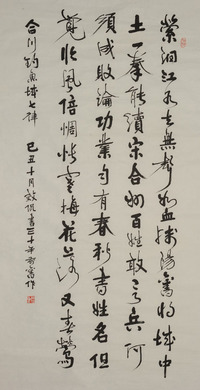 縈洄江水去無聲如血殘陽舊時城中
土一拳能續宋合州百姓敢言兵何
須成敗論功業自有春秋書姓名但
覺北風倍惆悵寒梅花落又春鶯
合川釣魚城七律 己丑十月書三十年前舊作